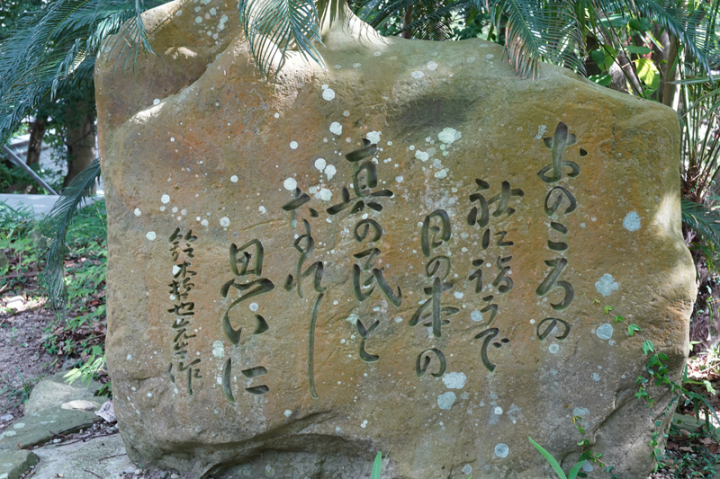 おのころの
社に詣うで
日の本の
真の民と
なれし
思いに
鈴木哲也 作